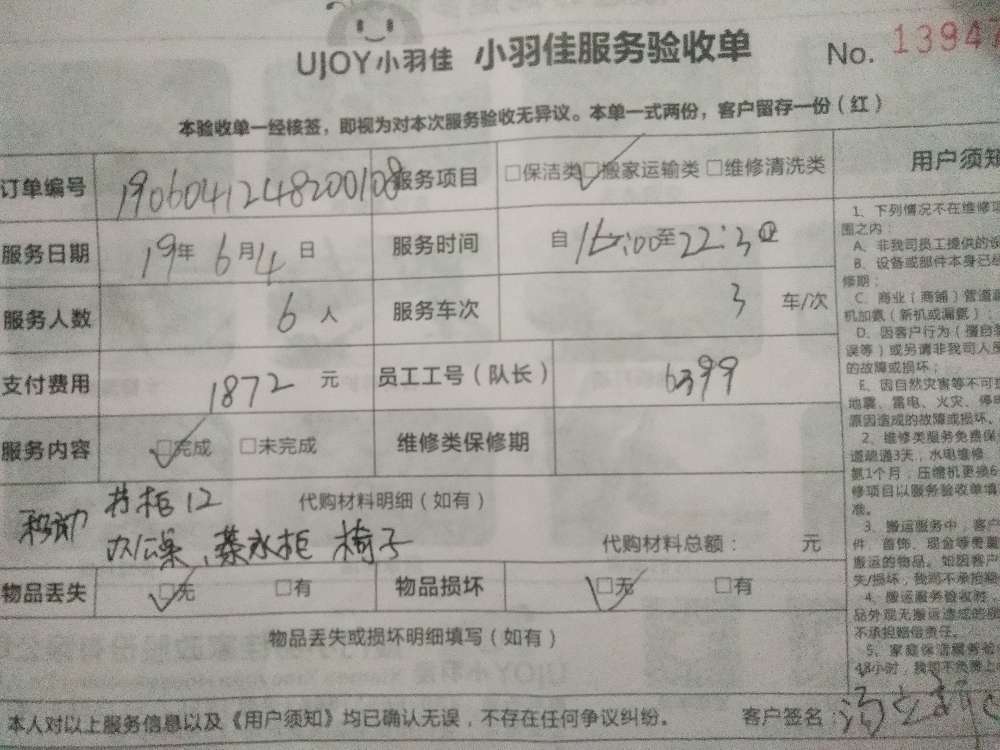 UJOY小羽佳 小羽佳服务验收单 No. 13947
本验收单一经核签，即视为对本次服务验收无异议。本单一式两份，客户留存一份（红）
订单编号 1906041248200108 服务项目 □保洁类 ☑搬家运输类 □维修清洗类
服务日期 19年 6月4日 服务时间 自 16:00至22:30
服务人数 6人 服务车次 3 车/次
支付费用 1872 元 员工工号（队长） 6399
服务内容 ☑完成 □未完成 维修类保修期
代购材料明细（如有）
移动 书柜12
办公桌、 椅子
代购材料总额： 元
物品丢失 ☑无 □有 物品损坏 ☑无 □有
物品丢失或损坏明细填写（如有）
本人对以上服务信息以及《用户须知》均已确认无误，不存在任何争议纠纷。 客户签名：
用户须知
1、下列情况不在维修
围之内：
A、非我司员工提供的
B、设备或部件本身已
修期；
C、商业（商铺）管道
机加氨（新机或漏氨）；
D、因客户行为（擅自
误等）或另请非我司人
的故障或损坏；
E、因自然灾害等不可
地震、雷电、火灾、停
原因造成的故障或损坏。
2、维修类服务免费保
道疏通3天，水电维修
氨1个月；压缩机更换6
修项目以服务验收单填
准。
3、搬运服务中，客户
件、首饰、现金等贵重
搬运的物品。如因客户
失/损坏，我司不承担赔
4、搬运服务验收时，
品外观无搬运造成的
不承担赔偿责任。
5、家庭保洁服务验
48小时，我司不免费上